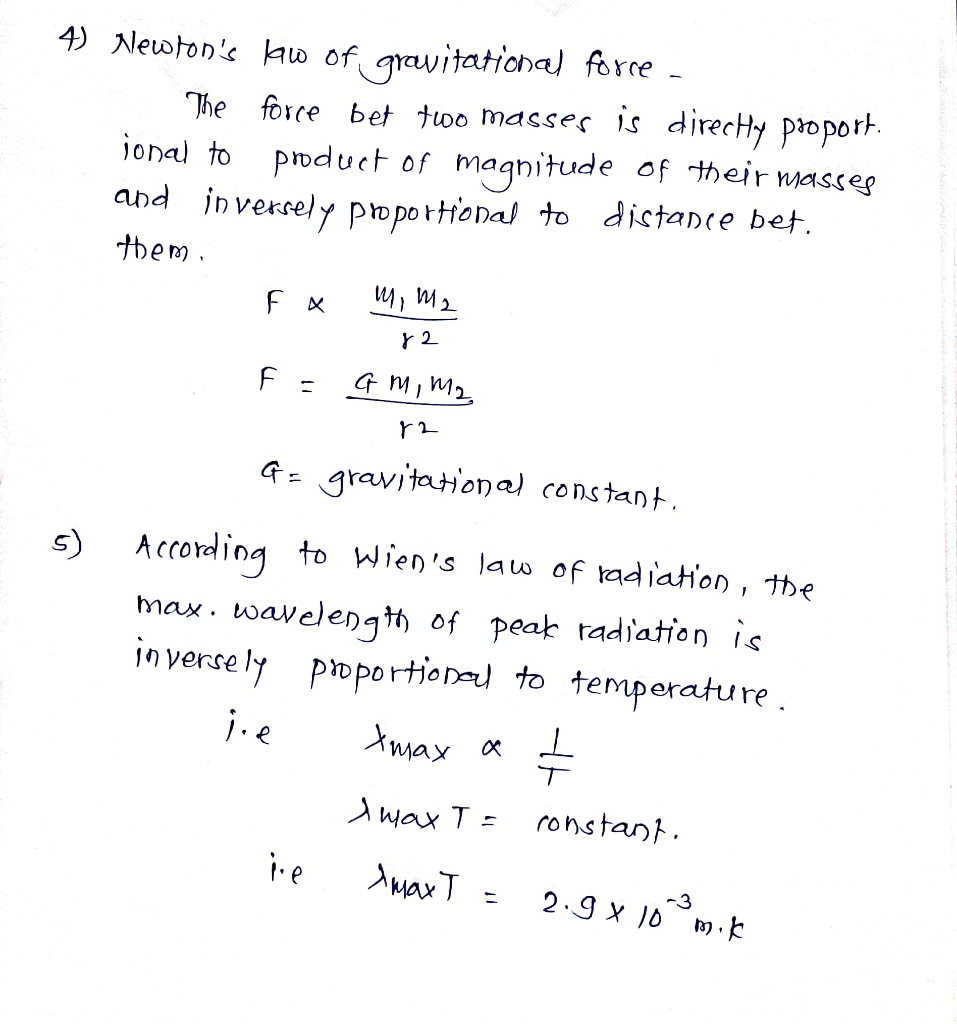 4) Newton's law of gravitational force -
The force bet two masses is directly proport.
ional to product of magnitude of their masses
and inversely proportional to distance bet.
them.
F ∝ m₁ m₂
r2
F = G m₁ m₂
r2
G = gravitational constant.
5) According to Wien's law of radiation, the
max. wavelength of peak radiation is
inversely proportional to temperature.
i.e λmax ∝ 1
T
λmax T = constant.
i.e λmax T = 2.9 x 10⁻³ m.k